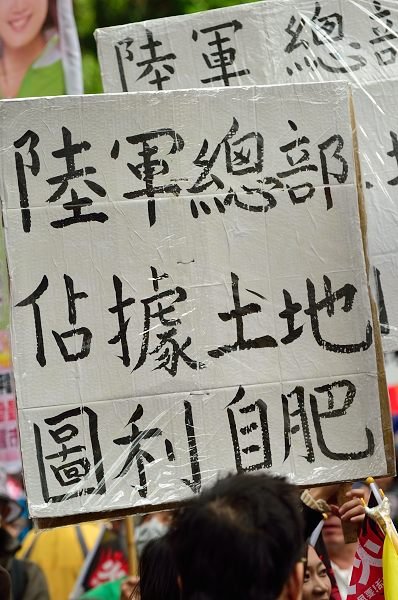 陸軍總部
佔據土地
圖利自肥
陸軍總部